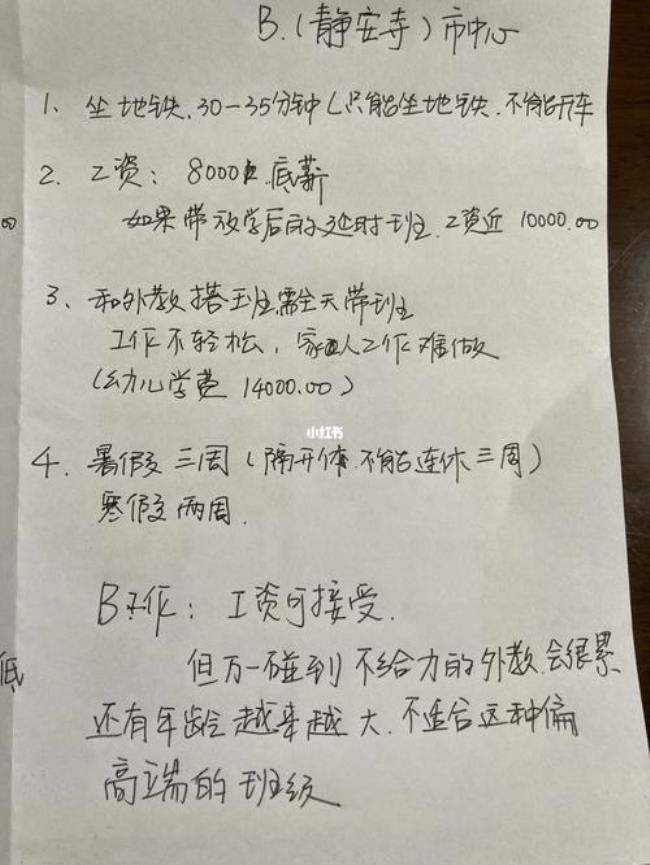 B.(静安寺)市中心
1、坐地铁、30-35分钟(只能坐地铁.不能开车
2. 工资: 8000 底薪
00
如果带放学后的延时班.工资近 10000.00
3、和外教搭班需全天带班
工作不轻松, 家人工作难做
(幼儿学费 14000.00)
小红书
4. 暑假 三周 (隔开休.不能连休三周)
寒假 两周.
B工作: 工资可接受.
但万一碰到 不给力的外教.会很累.
低
还有年龄越来越大.不适合这种偏
高端的班级